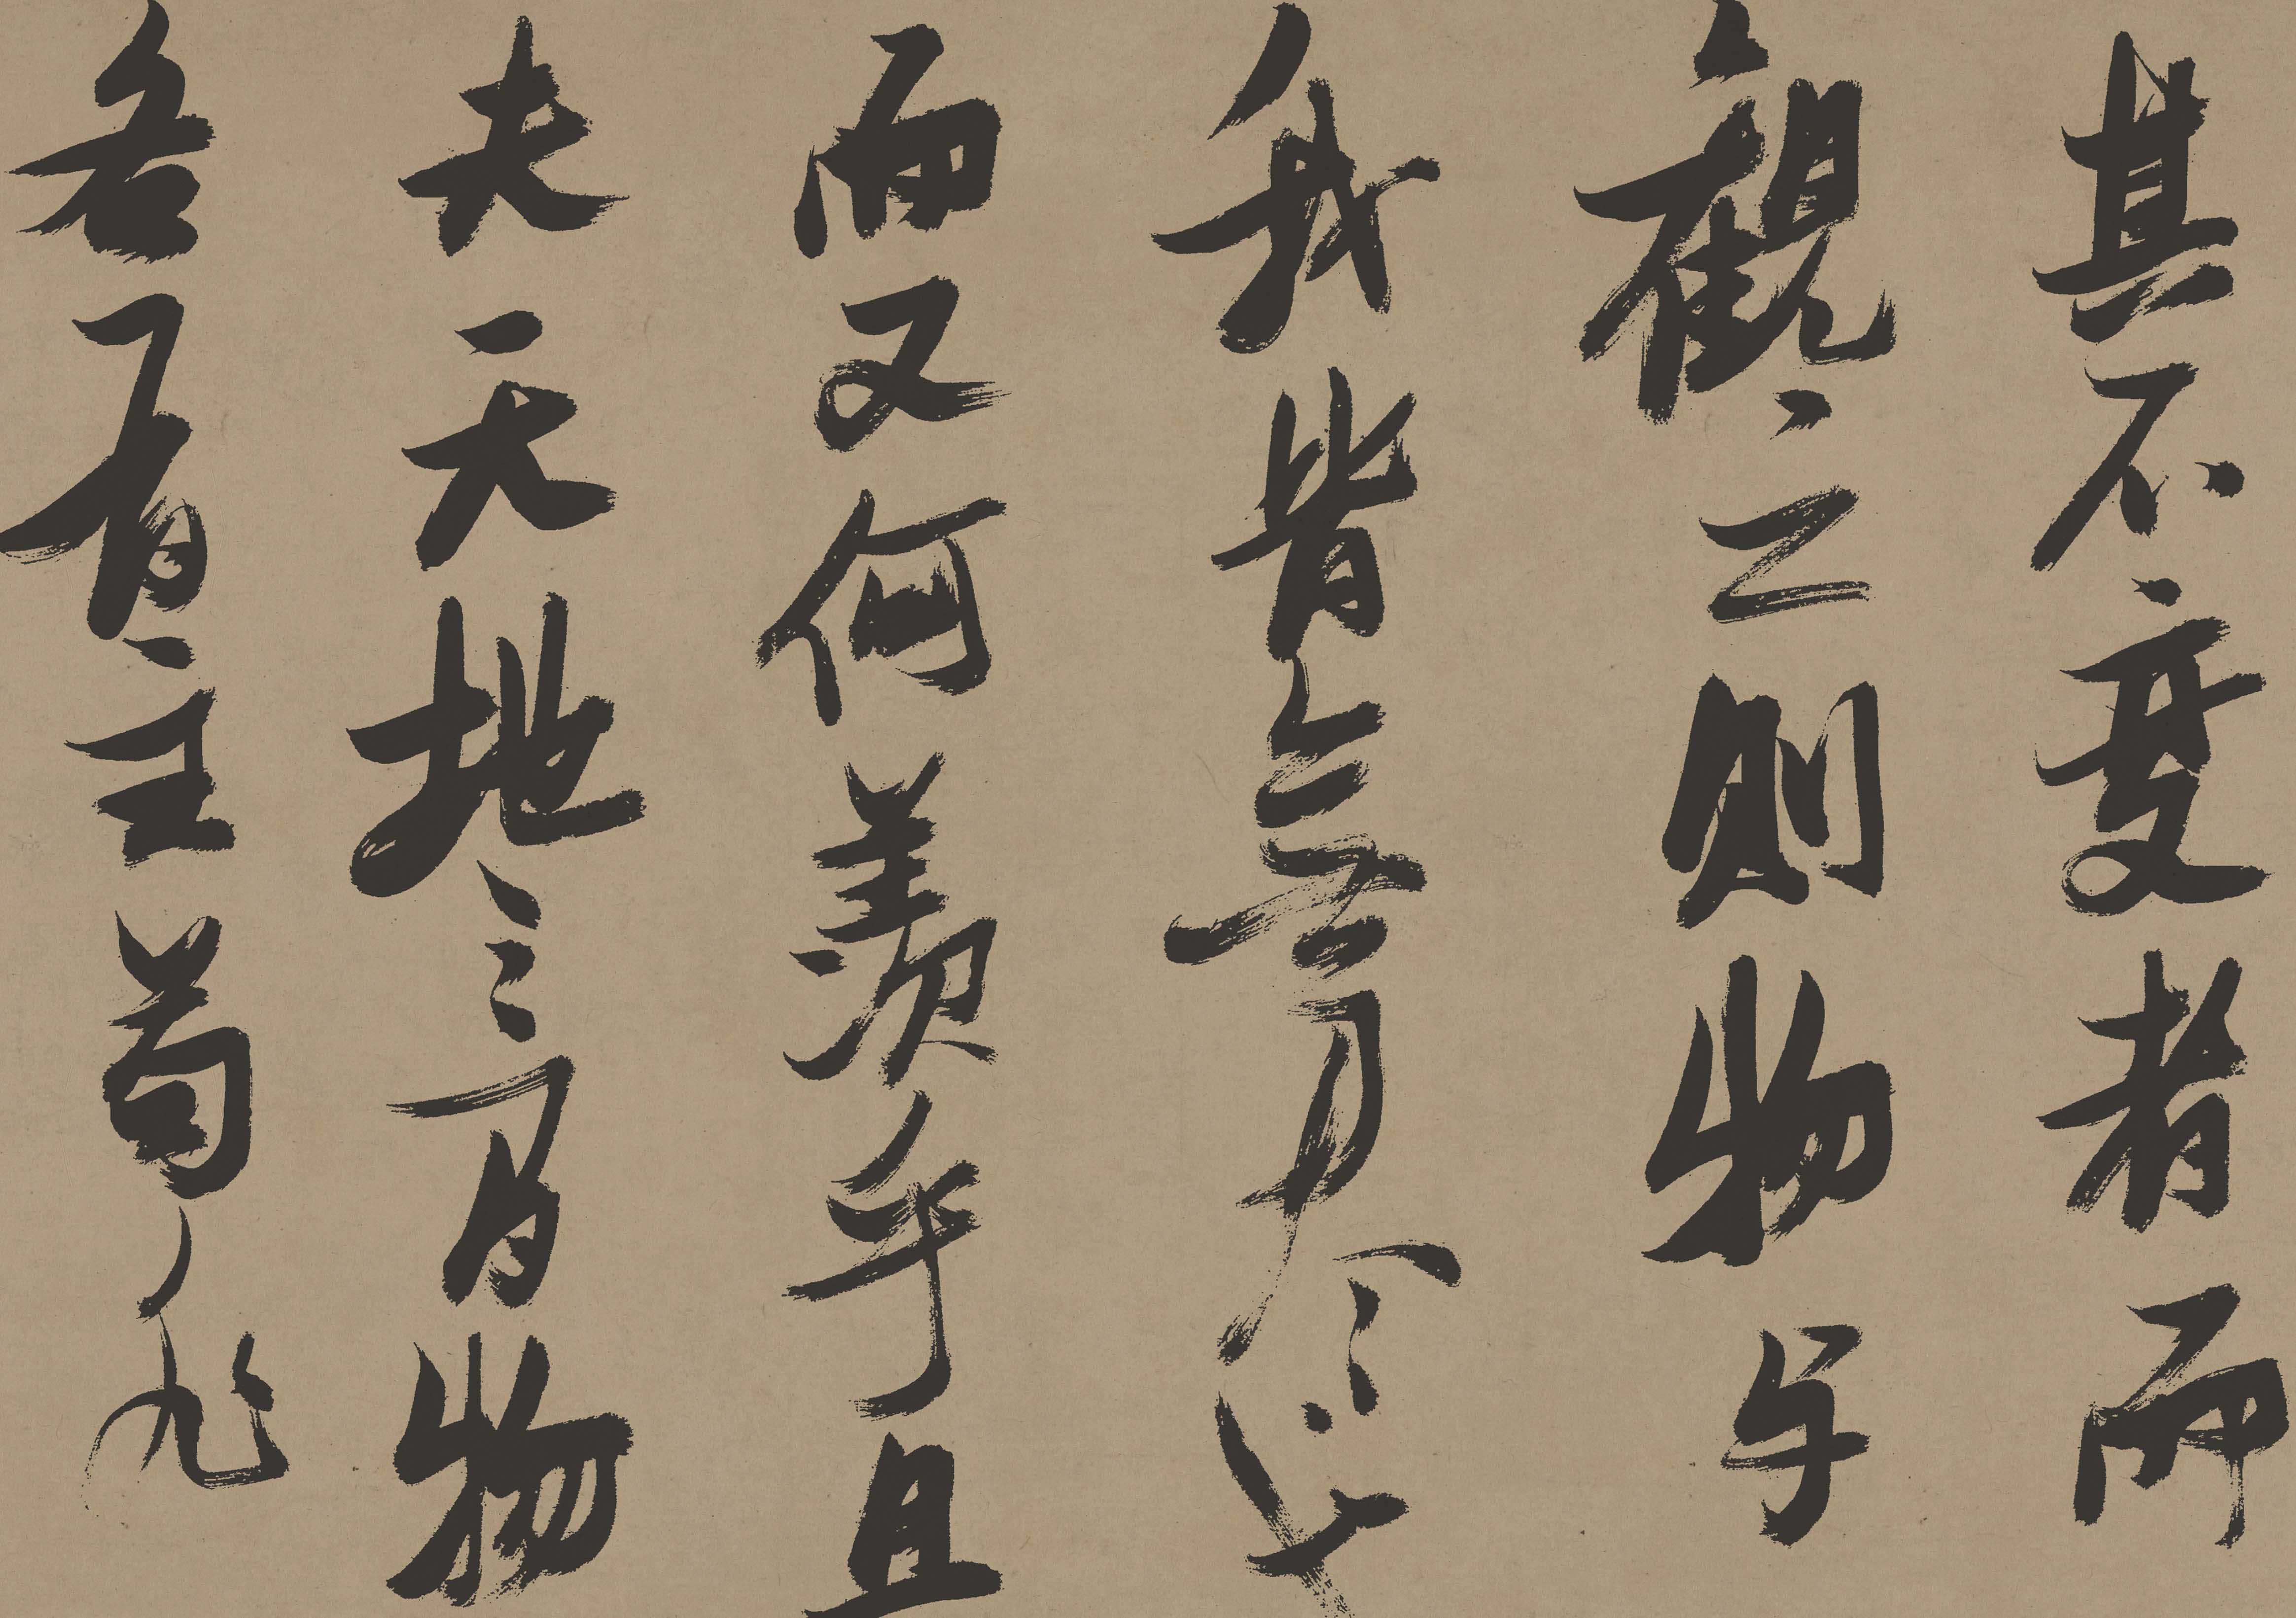 其不變者而
觀之則物与
我皆無盡也
而又何羨乎且
夫天地之間物
各有主苟非